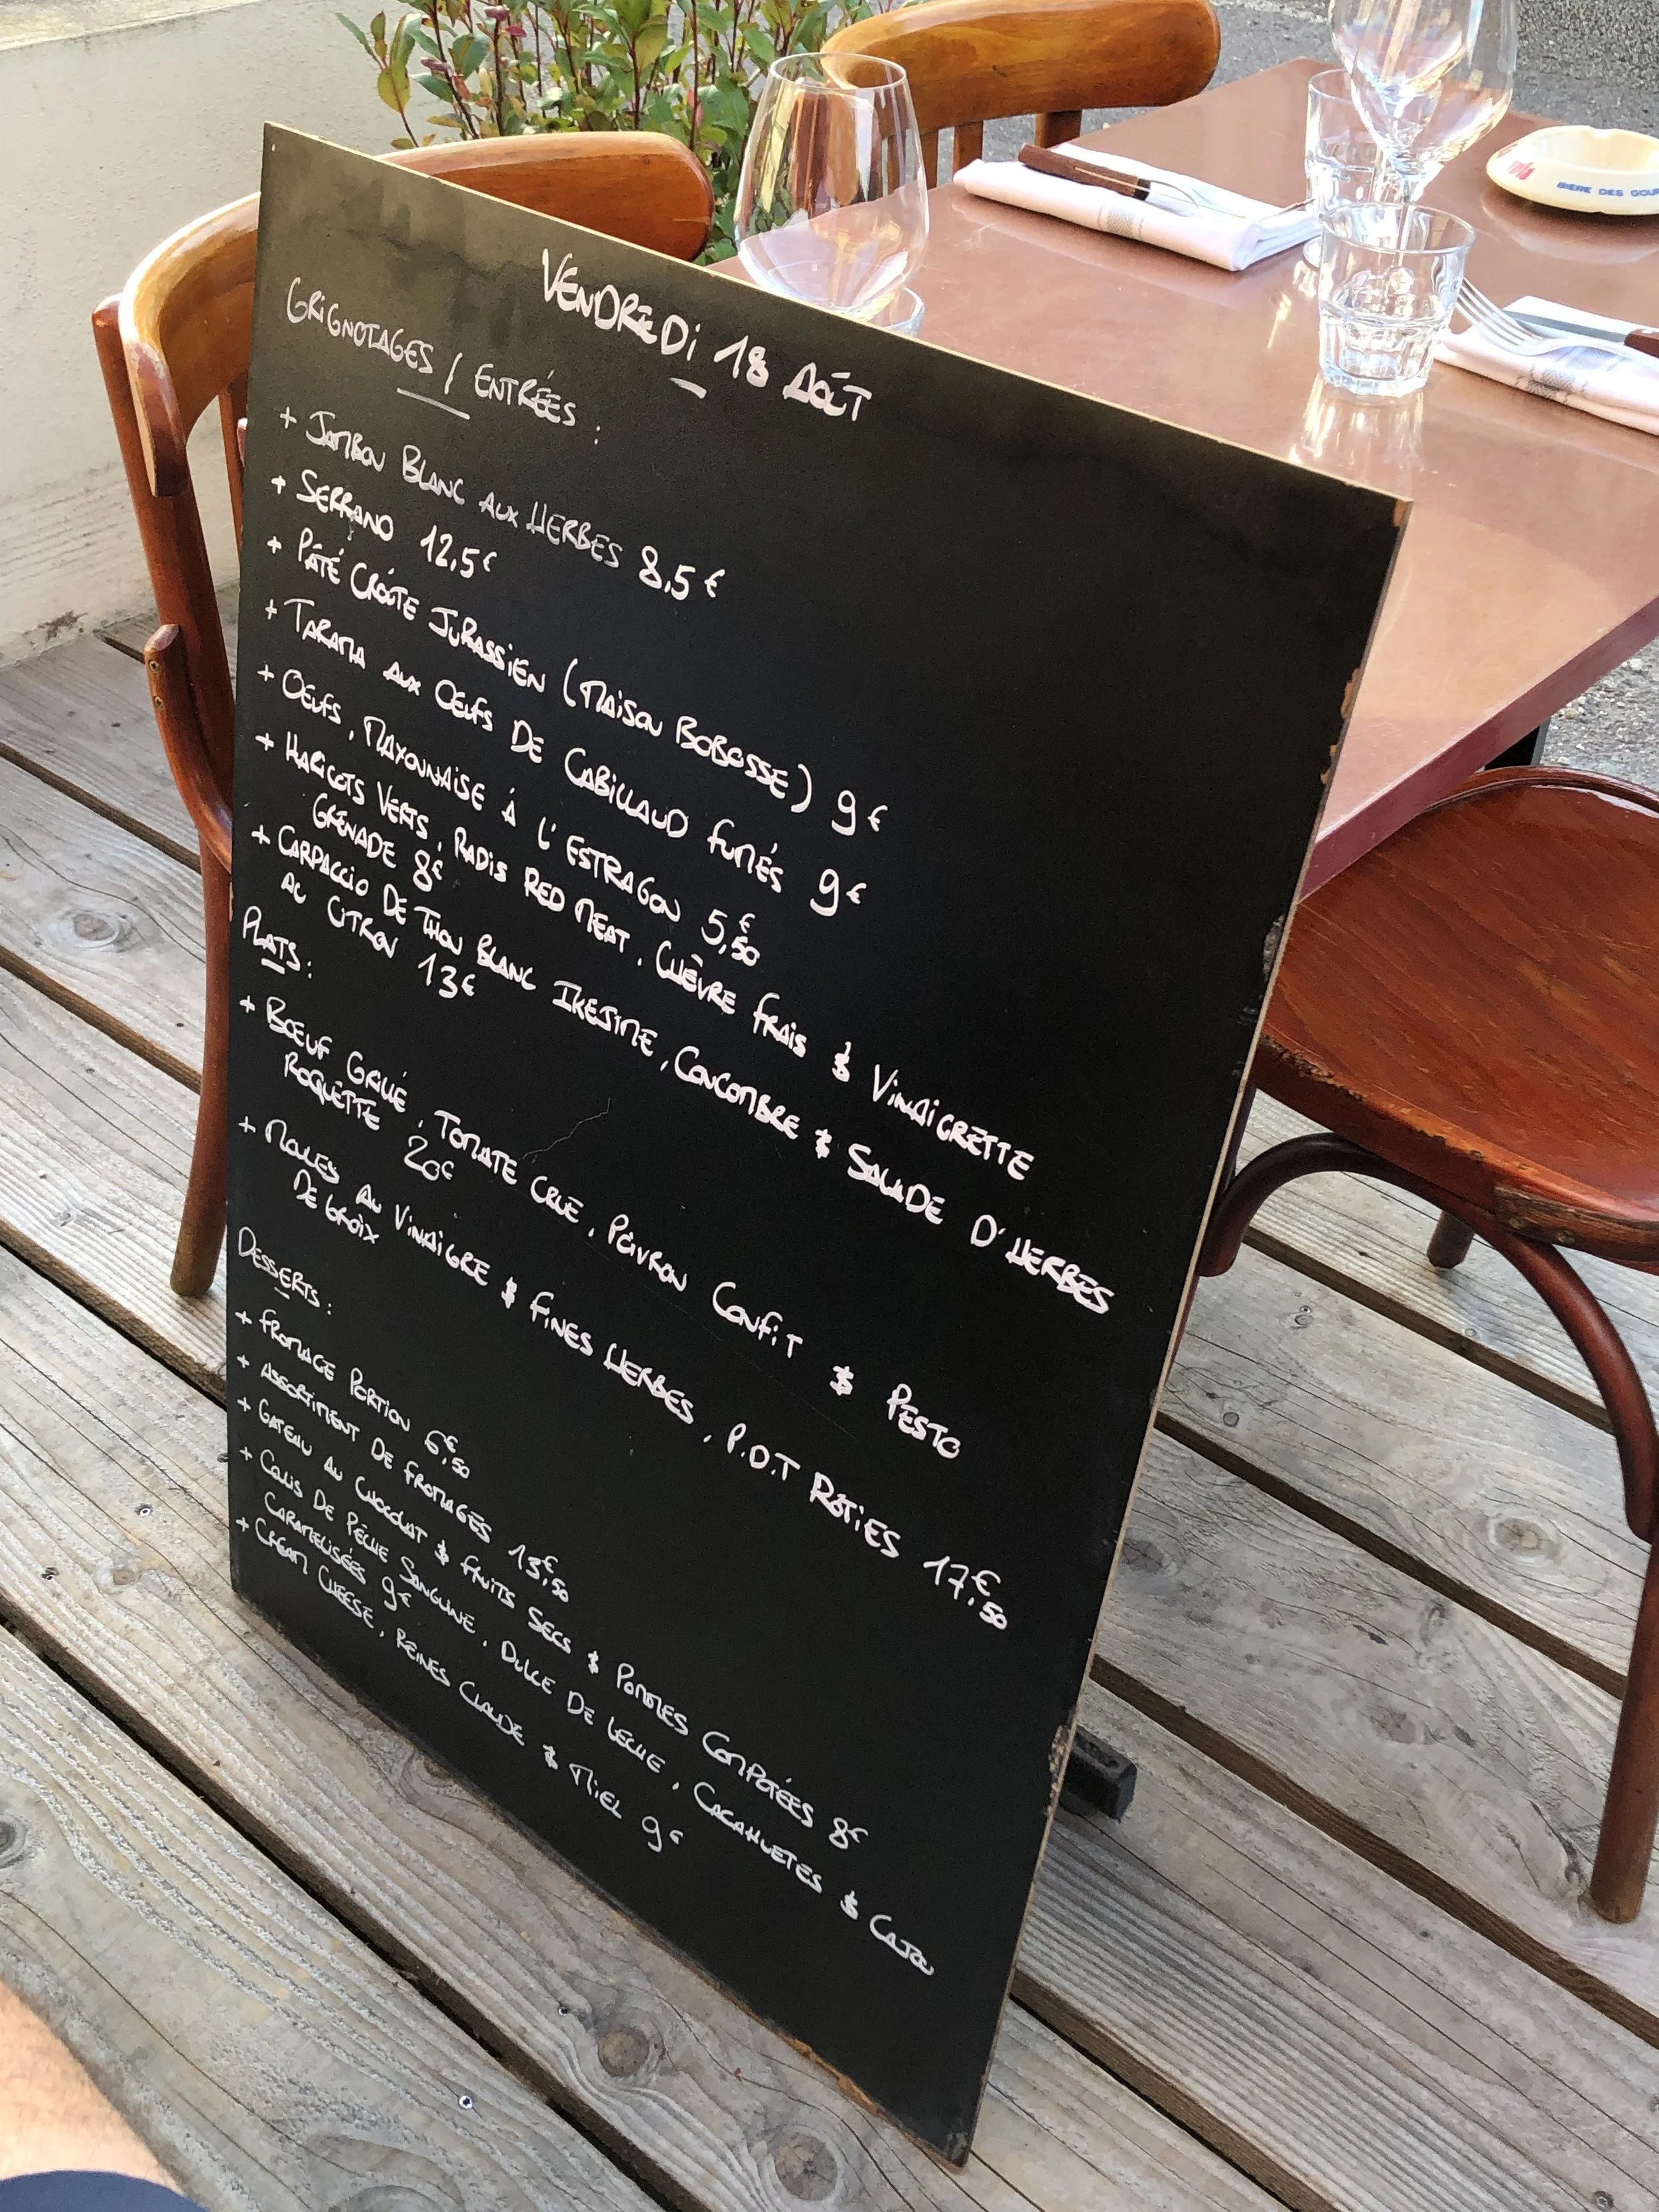 VENDREDI 18 AOÛT
GRIGNOTAGES / ENTRÉES :
+ JAMBON BLANC AUX HERBES 8,5€
+ SERRANO 12,5€
+ PÂTÉ CROÛTE JURASSIEN (MAISON BOBOSSE) 9€
+ TARAMA AUX OEUFS DE CABILLAUD FUMÉS 9€
+ OEUFS, MAYONNAISE À L'ESTRAGON 5,50€
+ HARICOTS VERTS, RADIS RED MEAT, CHÈVRE FRAIS & VINAIGRETTE
GRENADE 8€
+ CARPACCIO DE THON BLANC IKEJIME, CONCOMBRE & SALADE D'HERBES
AU CITRON 13€
PLATS :
+ BŒUF GRILLÉ, TOMATE CRUE, POIVRON CONFIT & PESTO
ROQUETTE 20€
+ MOULES AU VINAIGRE & FINES HERBES, P.D.T RÔTIES 17,50€
DE GROIX
DESSERTS :
+ FROMAGE PORTION 6,50€
+ ASSORTIMENT DE FROMAGES 13,50€
+ GATEAU AU CHOCOLAT & FRUITS SECS & POMMES COMPOTÉES 8€
+ COULIS DE PÊCHE SANGUINE, DULCE DE LECHE, CACAHUETES & CAJOU
CARAMELISÉES 9€
+ CREAM CHEESE, REINES CLAUDE & MIEL 9€
BIÈRE DES